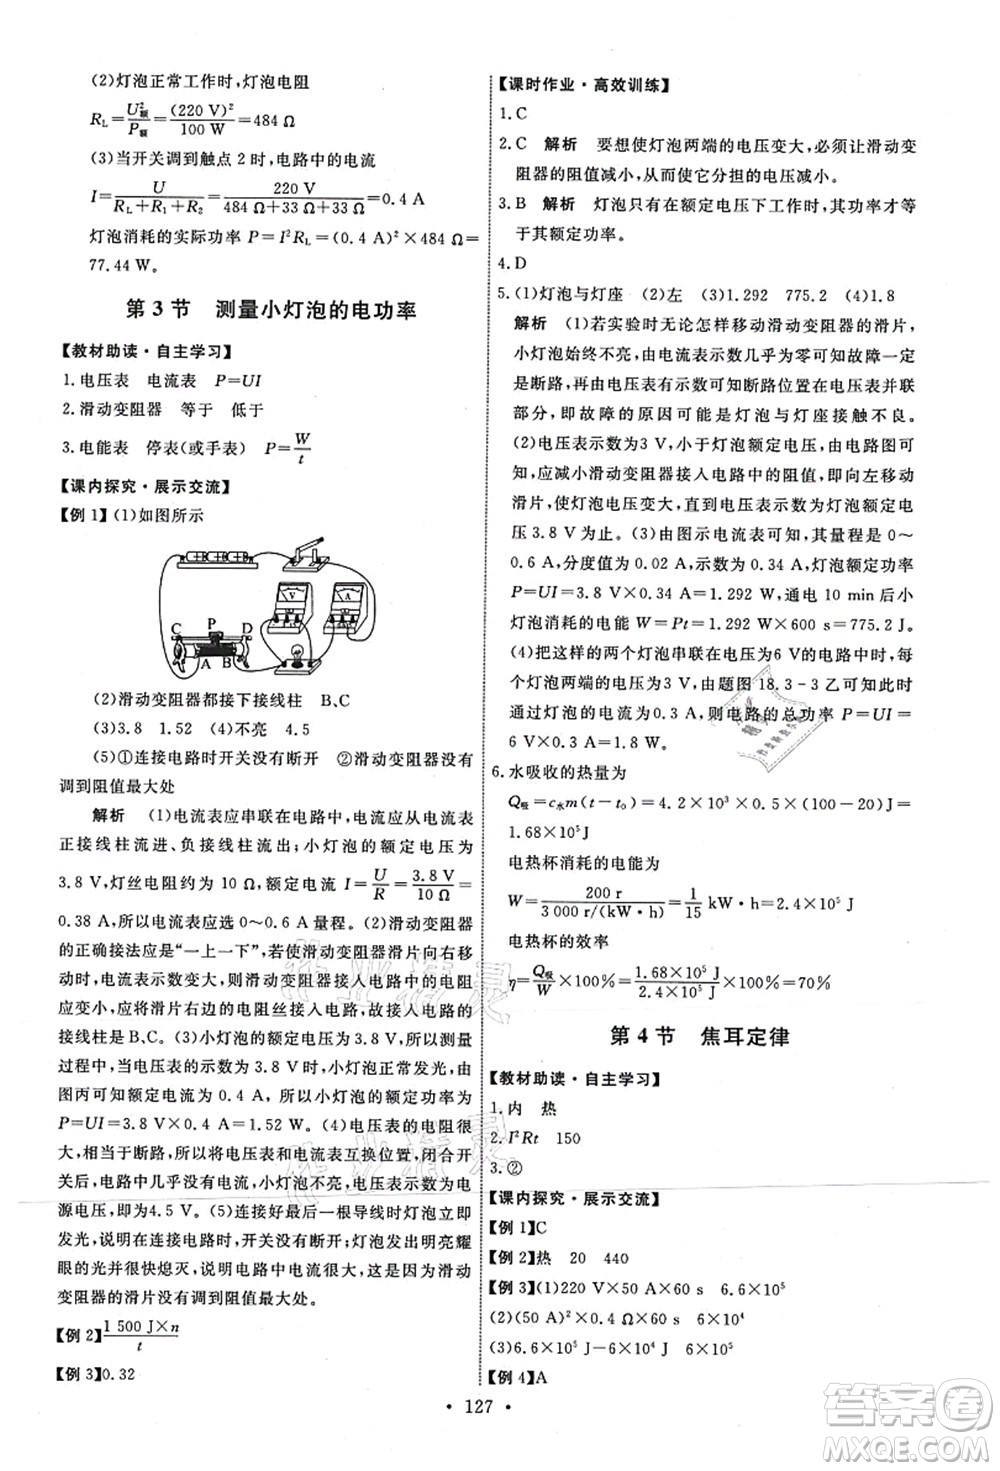 (2)灯泡正常工作时,灯泡电阻
R_L=U²额/P额=(220 V)²/100 W=484 Ω
(3)当开关调到触点 2 时,电路中的电流
I=U/(R_L+R_1+R_2)=220 V/(484 Ω+33 Ω+33 Ω)=0.4 A
灯泡消耗的实际功率 P=I²R_L=(0.4 A)²×484 Ω=
77.44 W。
第 3 节 测量小灯泡的电功率
【教材助读·自主学习】
1.电压表 电流表 P=UI
2.滑动变阻器 等于 低于
3.电能表 停表(或手表) P=W/t
【课内探究·展示交流】
【例 1】(1)如图所示
V
A
C P D
A B
(2)滑动变阻器都接下接线柱 B、C
(3)3.8 1.52 (4)不亮 4.5
(5)①连接电路时开关没有断开 ②滑动变阻器没有
调到阻值最大处
解析 (1)电流表应串联在电路中,电流应从电流表
正接线柱流进、负接线柱流出;小灯泡的额定电压为
3.8 V,灯丝电阻约为 10 Ω,额定电流 I=U/R=3.8 V/10 Ω=
0.38 A,所以电流表应选 0～0.6 A 量程。(2)滑动变阻器
的正确接法应是“一上一下”,若使滑动变阻器滑片向右
移动时,电流表示数变大,则变阻器接入电路中的电阻
变小,滑片右边的电阻丝接入电路,故接入的接线柱应
是B、C。(3)小灯泡的额定电压为 3.8 V,所以在测量
过程中,当电压表的示数为 3.8 V 时,小灯泡正常发光,由
图丙可知额定电流为 0.4 A,所以小灯泡的额定功率为
P=UI=3.8 V×0.4 A=1.52 W。(4)电压表的电阻很
大,串联在电路中时相当于断路,电流表的电阻很小,
相当于导线,所以当电压表和电流表互换位置,闭合开
关后,电路中几乎没有电流,小灯泡不亮,电压表示数为电
源电压4.5 V。(5)连接好最后一根导线时灯泡立即
发光,说明在连接电路时,开关没有断开;灯泡发出明亮耀
眼的光并很快熄灭,说明电路中电流过大,是由于滑动
变阻器的滑片没有调到阻值最大处。
【例 2】1 500 J×n/t
【例 3】0.32
【课时作业·高效训练】
1.C
2.C 解析 要想使灯泡两端的电压变大,必须让滑动变
阻器的阻值减小,从而使它分担的电压减小。
3.B 解析 灯泡只有在额定电压下工作时,其功率才等
于其额定功率。
4.D
5.(1)灯泡与灯座 (2)左 (3)1.292 775.2 (4)1.8
解析 (1)若实验时无论怎样移动滑动变阻器的滑片,
小灯泡始终不亮,电流表示数几乎为零可知故障一定
是断路,再由电压表有示数可知断路位置与电压表并联
部分,即故障的原因可能是灯泡与灯座接触不良。
(2)电压表示数为3 V,小于灯泡额定电压,由电路图可
知,应减小滑动变阻器接入电路中的阻值,即向左移动
滑片,使灯泡电压变大,直到电压表示数为灯泡额定电
压3.8 V为止。(3)由图示电流表可知,其量程为 0～
0.6 A,分度值为 0.02 A,示数为 0.34 A,灯泡额定功率
P=UI=3.8 V×0.34 A=1.292 W,通电 10 min后小
灯泡消耗的电能 W=Pt=1.292 W×600 s=775.2 J。
(4)把这样的两个灯泡串联在电压为6 V的电路中,每
个灯泡两端的电压为3 V,由题图 18.3－3乙可知此时
通过灯泡的电流为0.3 A,则电路的总功率 P=UI=
6 V×0.3 A=1.8 W。
6.水吸收的热量为
Q吸=c水m(t－t₀)=4.2×10³×0.5×(100－20) J=
1.68×10⁵J
电热杯消耗的电能为
W=200 r/3 000 r/(kW·h)=1/15 kW·h=2.4×10⁵J
电热杯的效率
η=Q吸/W×100%=1.68×10⁵ J/2.4×10⁵ J×100%=70%
第 4 节 焦耳定律
【教材助读·自主学习】
1.内 热
2.I²Rt 150
3.②
【课内探究·展示交流】
【例 1】C
【例 2】热 20 440
【例 3】(1)220 V×50 A×60 s 6.6×10⁵
(2)(50 A)²×0.4 Ω×60 s 6×10⁴
(3)6.6×10⁵ J－6×10⁴ J 6×10⁵
【例 4】A
• 127 •
作业精灵
作业精灵
答案卷
MXQE.COM